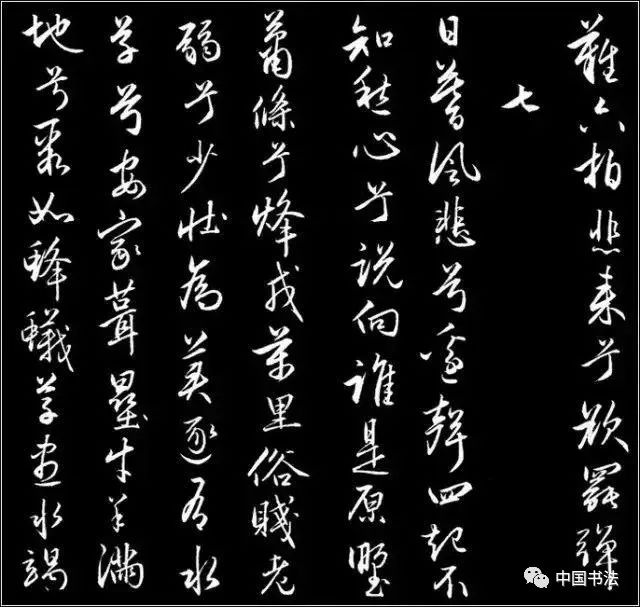 難六拍悲来兮欲罷弹
七
日暮风悲兮邊聲四起不
知愁心兮说向谁是原野
蕭條兮烽戍萬里俗賤老
弱兮少壮為美逐有水
草兮安家葺壘牛羊满
地兮聚如蜂蟻草盡水竭
中国书法